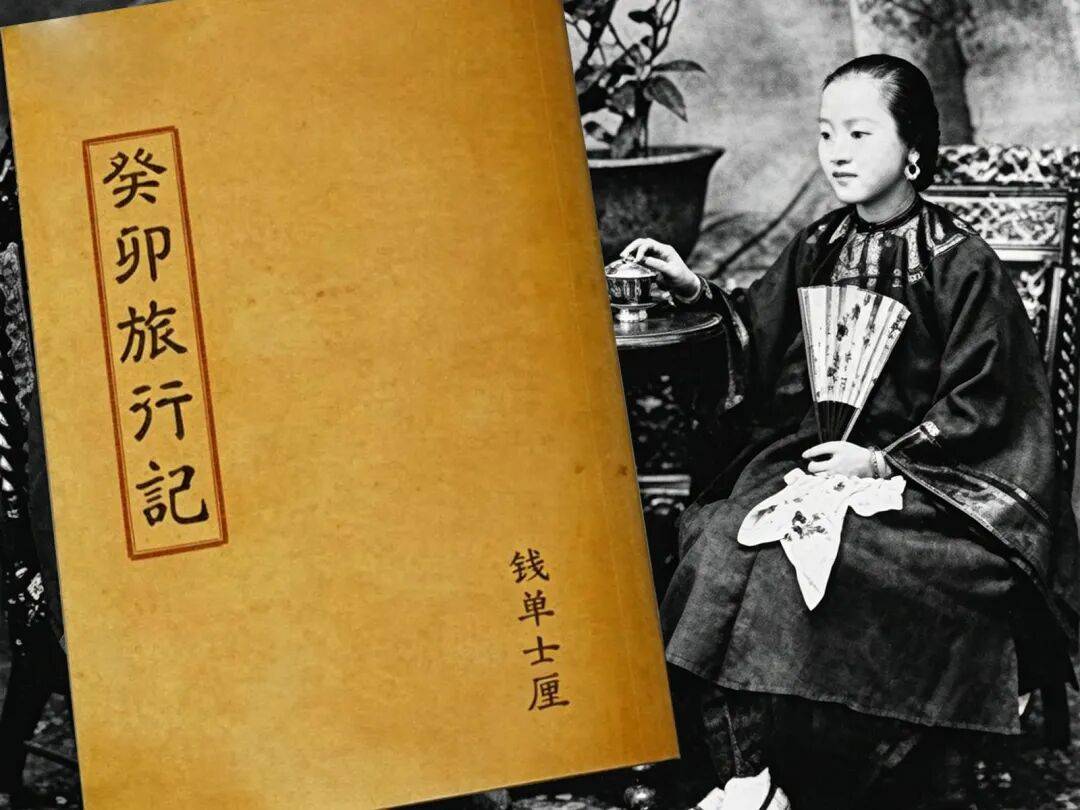 癸卯旅行記
钱单士厘